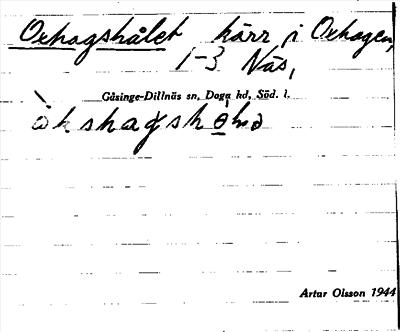 Oxhagshålet kärr i Oxhagen,
1-3 Näs,
Gåsinge-Dillnäs sn, Daga hd, Söd. l.
Artur Olsson 1944